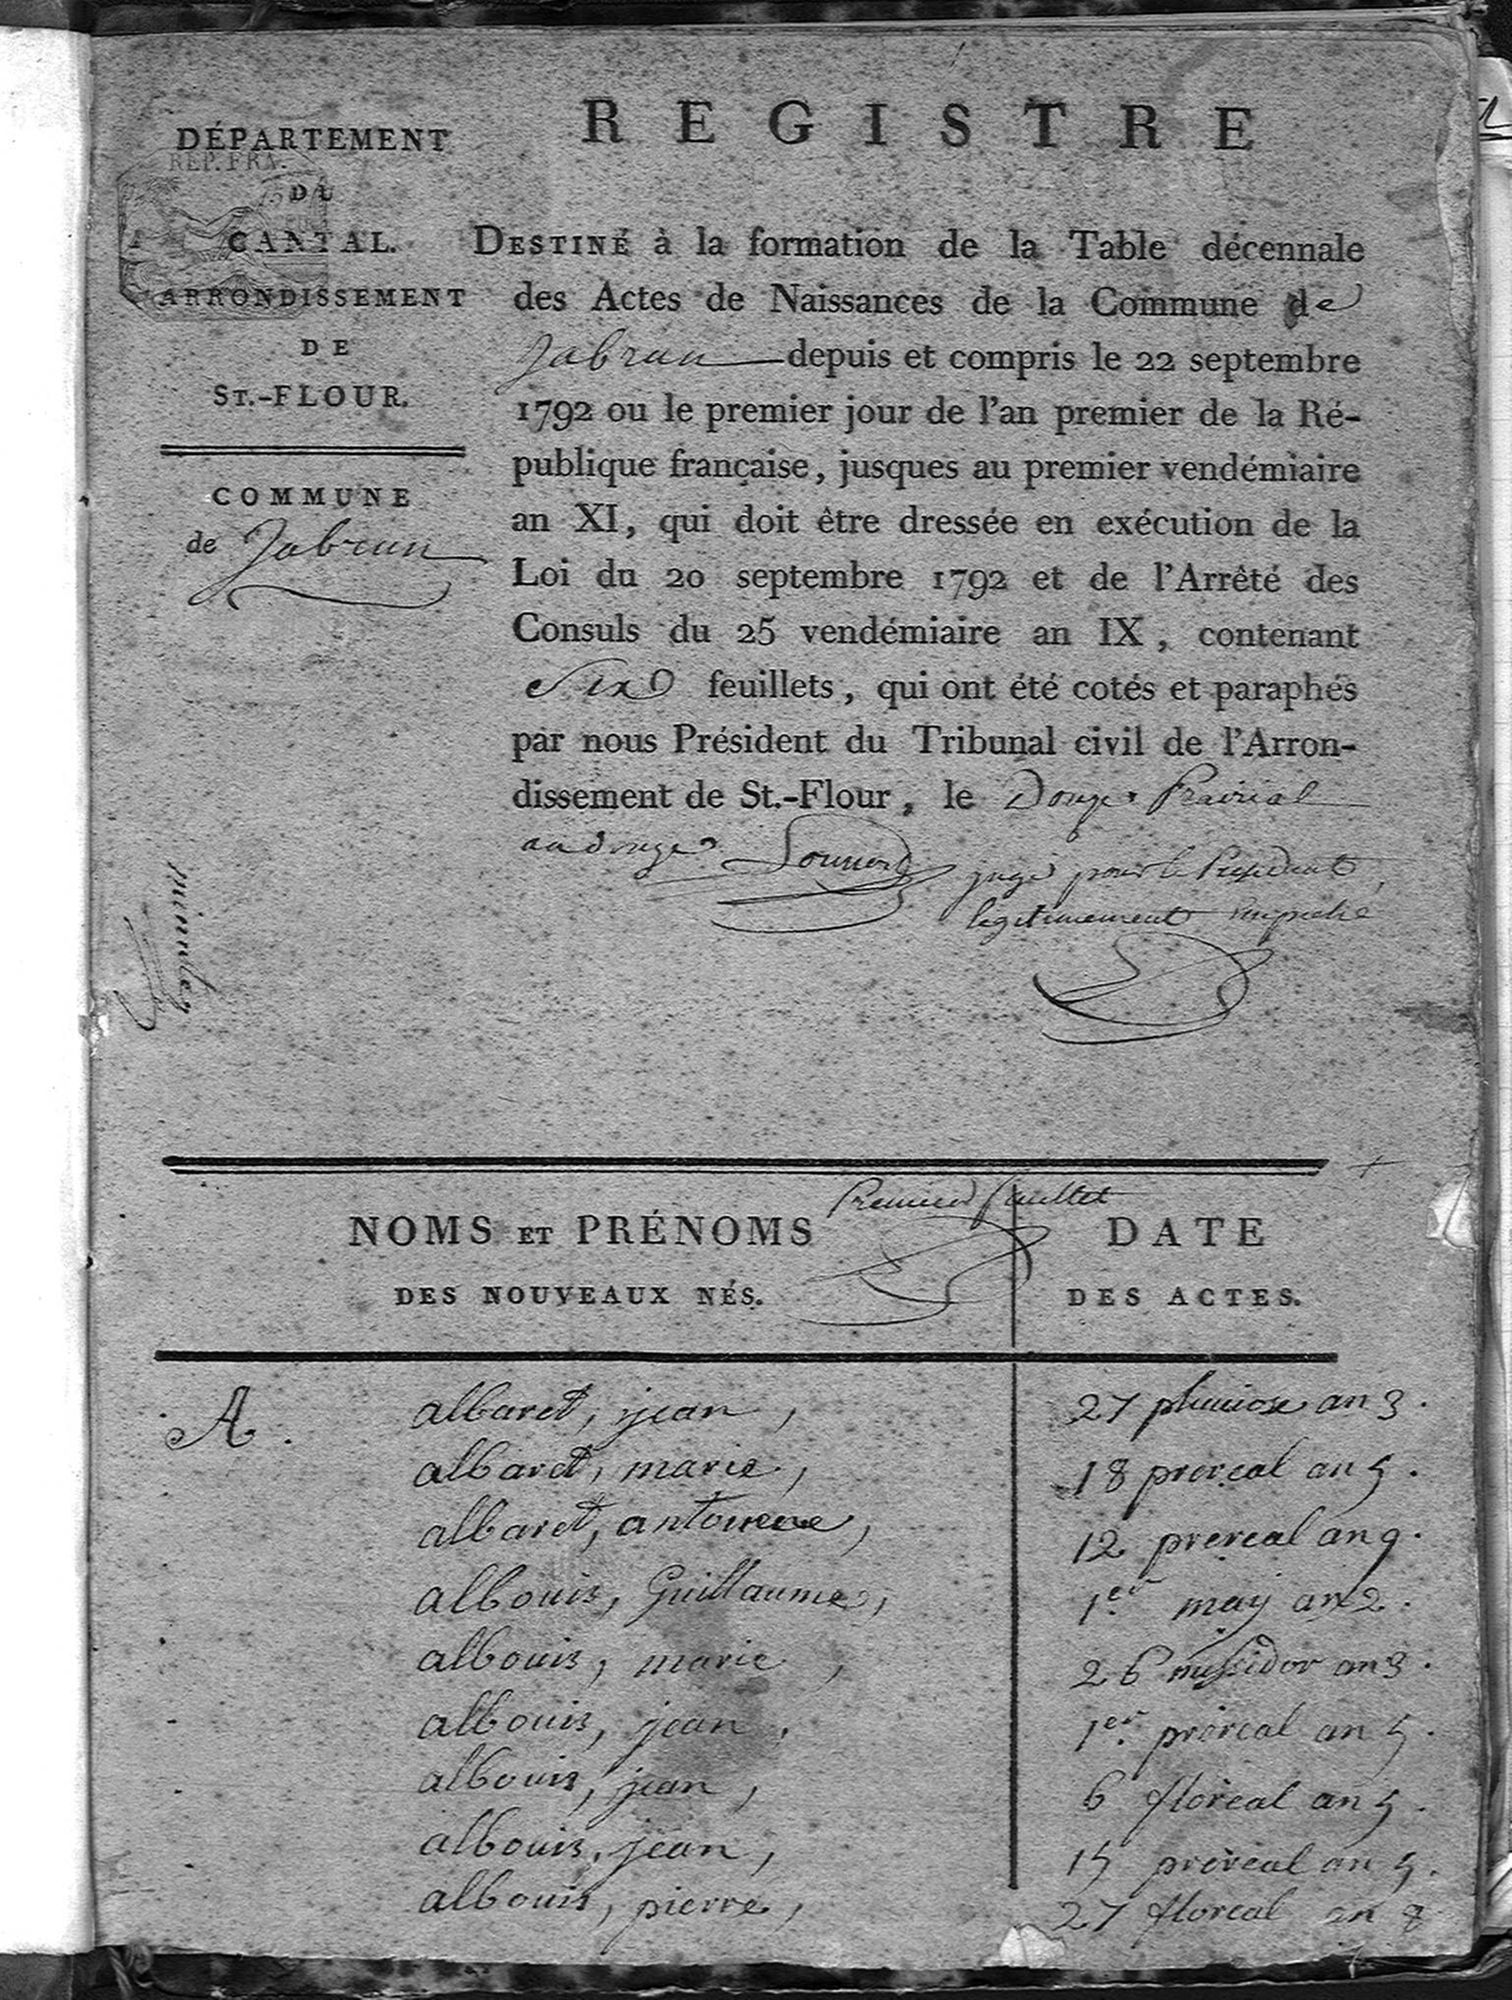 REGISTRE
DÉPARTEMENT
RÉP. FRA.
DU
CANTAL.
ARRONDISSEMENT
DE
ST.-FLOUR.
COMMUNE
de Jabrun
DESTINÉ à la formation de la Table décennale
des Actes de Naissances de la Commune de
Jabrun depuis et compris le 22 septembre
1792 ou le premier jour de l'an premier de la Ré-
publique française, jusques au premier vendémiaire
an XI, qui doit être dressée en exécution de la
Loi du 20 septembre 1792 et de l'Arrêté des
Consuls du 25 vendémiaire an IX, contenant
Six feuillets, qui ont été cotés et paraphés
par nous Président du Tribunal civil de l'Arron-
dissement de St.-Flour, le Douze Prairial
an douze juge pour le President
legitimement empeché
Premier feuillet
NOMS ET PRÉNOMS
DES NOUVEAUX NÉS.
DATE
DES ACTES.
A.
albaret, jean, 27 pluviose an 3.
albaret, marie, 18 prereal an 5.
albaret, antoinne, 12 prereal an 9.
albouis, Guillaume, 1er may an 2.
albouis, marie, 26 messidor an 3.
albouis, jean, 1er prereal an 5.
albouis, jean, 6 floreal an 5.
albouis, jean, 15 prereal an 5.
albouis, pierre, 27 floreal an 8